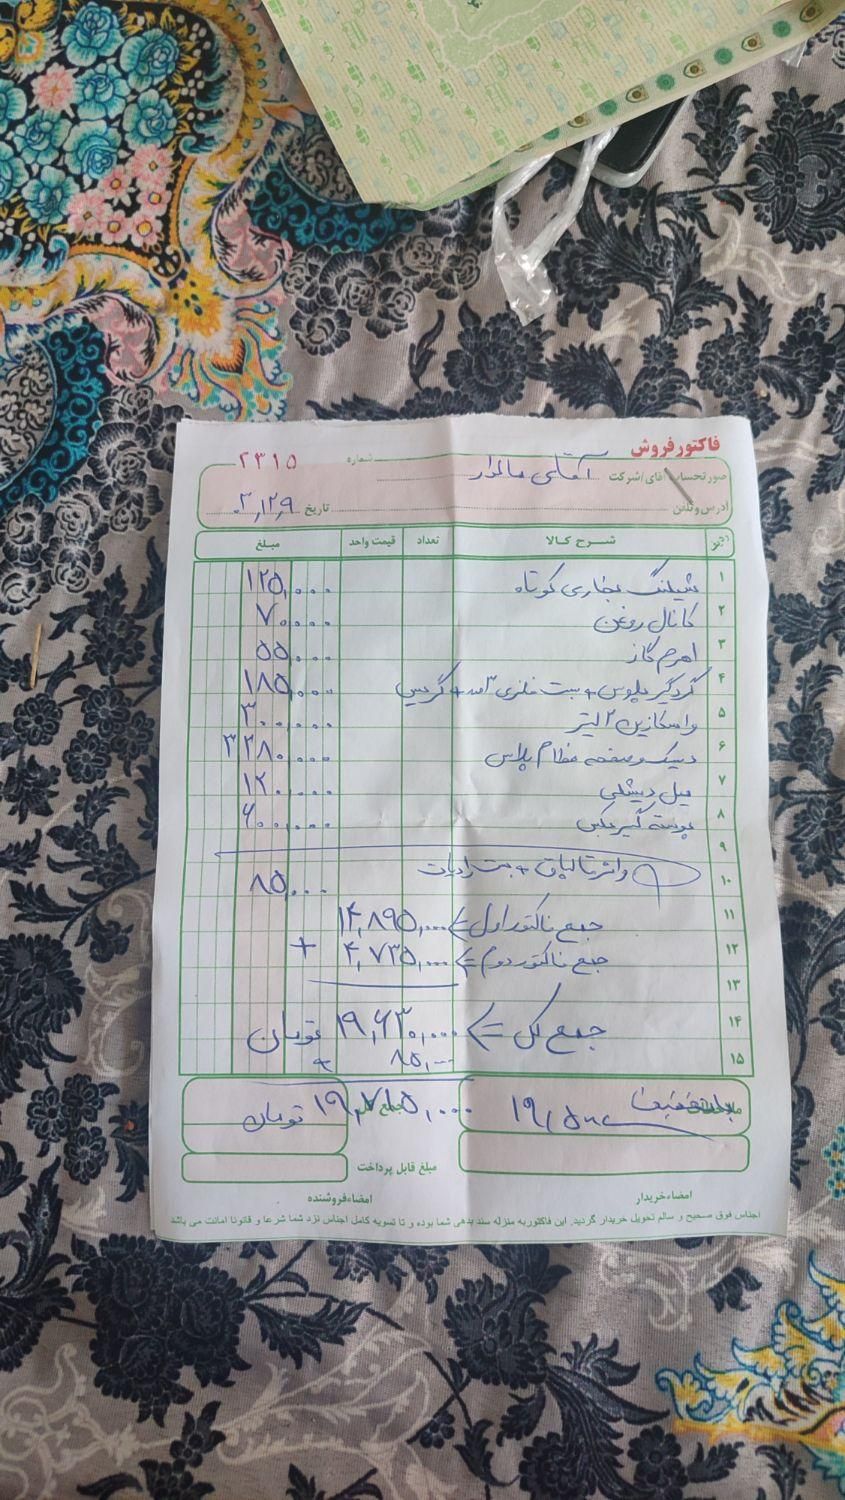 فاکتور فروش
شماره ۲۳۱۵
صورتحساب آقای/شرکت آقای مالدار
آدرس و تلفن تاریخ ۰۳,۱۲,۹
ردیف شرح کالا تعداد قیمت واحد مبلغ
۱ شیلنگ بخاری کوتاه ۱۲۵,۰۰۰
۲ کانال روغن ۷۰,۰۰۰
۳ اهرم گاز ۵۵,۰۰۰
۴ گردگیر پلوس + بست فلزی ۳ عدد + گریس ۱۸۵,۰۰۰
۵ واسکازین ۲ لیتر ۳۰۰,۰۰۰
۶ دیسک و صفحه عظام پلاس ۳۲۸۰,۰۰۰
۷ میل دیشلی ۱۲۰,۰۰۰
۸ پوسته گیربکس ۶۰۰,۰۰۰
۹
۱۰ واشر تالپاق + بست رادیات ۸۵,۰۰۰
۱۱ جمع فاکتور اول => ۱۴,۸۹۵,۰۰۰
۱۲ جمع فاکتور دوم => ۴,۷۳۵,۰۰۰ +
۱۳
۱۴ جمع کل => ۱۹,۶۳۰,۰۰۰ تومان
۱۵ ۸۵,۰۰۰ +
با تخفیف ۱۹,۵۰۰ جمع کل ۱۹,۷۱۵,۰۰۰ تومان
مبلغ قابل پرداخت
امضاء خریدار امضاء فروشنده
اجناس فوق صحیح و سالم تحویل خریدار گردید. این فاکتور به منزله سند بدهی شما بوده و تا تسویه کامل اجناس نزد شما شرعا و قانونا امانت می باشد